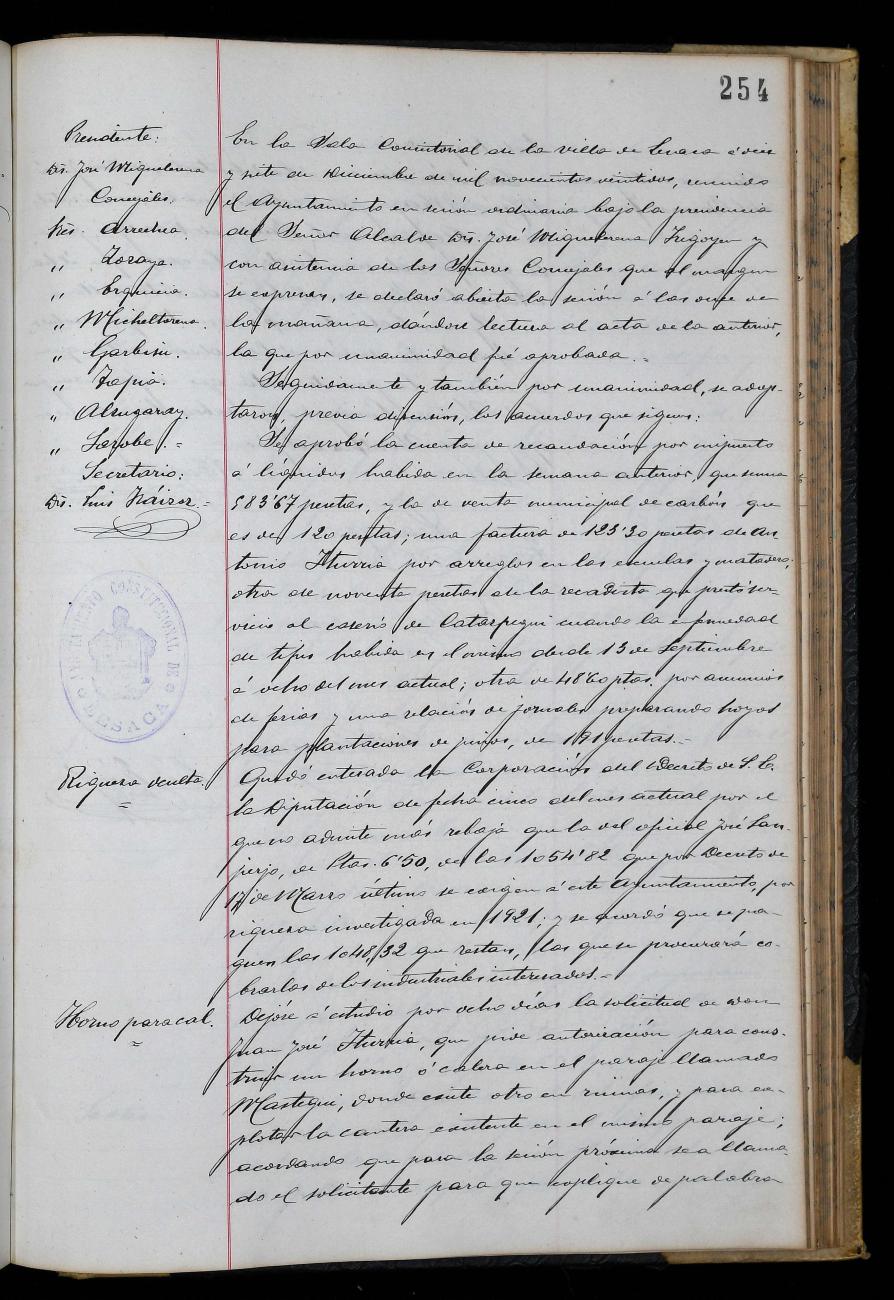 254
Presidente:
Dn. José Miguelerena
Concejales.
Sres. Arrechea.
„ Zozaya.
„ Erquicia.
„ Micheltorena.
„ Garbisu.
„ Tapia.
„ Alzugaray.
„ Sarobe. =
Secretario:
Dn. Luis Náizer =
AYUNTAMIENTO CONSTITUCIONAL DE LESACA
Riqueza oculta.
=
Horno para cal.
=
En la Sala Consistorial de la villa de Lesaca á diez
y siete de Diciembre de mil novecientos veintidos, reunido
el Ayuntamiento en sesión ordinaria bajo la presidencia
del Señor Alcalde Dn. José Miguelerena Irigoyen y
con asistencia de los Señores Concejales que al margen
se expresan, se declaró abierta la sesión á las once de
la mañana, dándose lectura al acta de la anterior,
la que por unanimidad fué aprobada. =
Seguidamente y también por unanimidad, se adop-
taron, previa discusión, los acuerdos que siguen:
Se aprobó la cuenta de recaudación por impuesto
á líquidos habida en la semana anterior, que suma
583'67 pesetas, y la de venta municipal de carbón que
es de 120 pesetas; una factura de 123'30 pesetas de An-
tonio Iturria por arreglos en las escuelas y matadero;
otra de noventa pesetas de la recadista que prestó ser-
vicio al caserío de Cataspegui cuando la enfermedad
de tifus habida en el mismo desde 13 de Septiembre
á ocho del mes actual; otra de 48'60 ptas. por anuncios
de ferias y una relación de jornales preparando hoyos
para plantaciones de pinos, de 191 pesetas. =
Quedó enterada la Corporación del Decreto de S. E.
la Diputación de fecha cinco del mes actual por el
que no admite más rebaja que la del oficial José San-
perjo, de Ptas. 6'50, de las 1054'82 que por Decreto de
17 de Marzo último se exigen á este Ayuntamiento, por
riqueza investigada en 1921; y se acordó que se pa-
guen las 1048,32 que restan, las que se procurará co-
brarlas de los industriales interesados. =
Dejóse á estudio por ocho días la solicitud de don
Juan José Iturria, que pide autorización para cons-
truir un horno ó calera en el paraje llamado
Mastegui, donde existe otro en ruinas, y para ex-
plotar la cantera existente en el mismo paraje;
acordando que para la sesión próxima sea llama-
do el solicitante para que explique de palabra